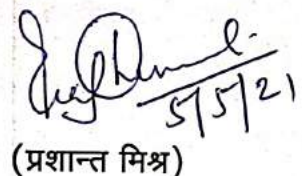 5/5/21
(प्रशान्त मिश्र)